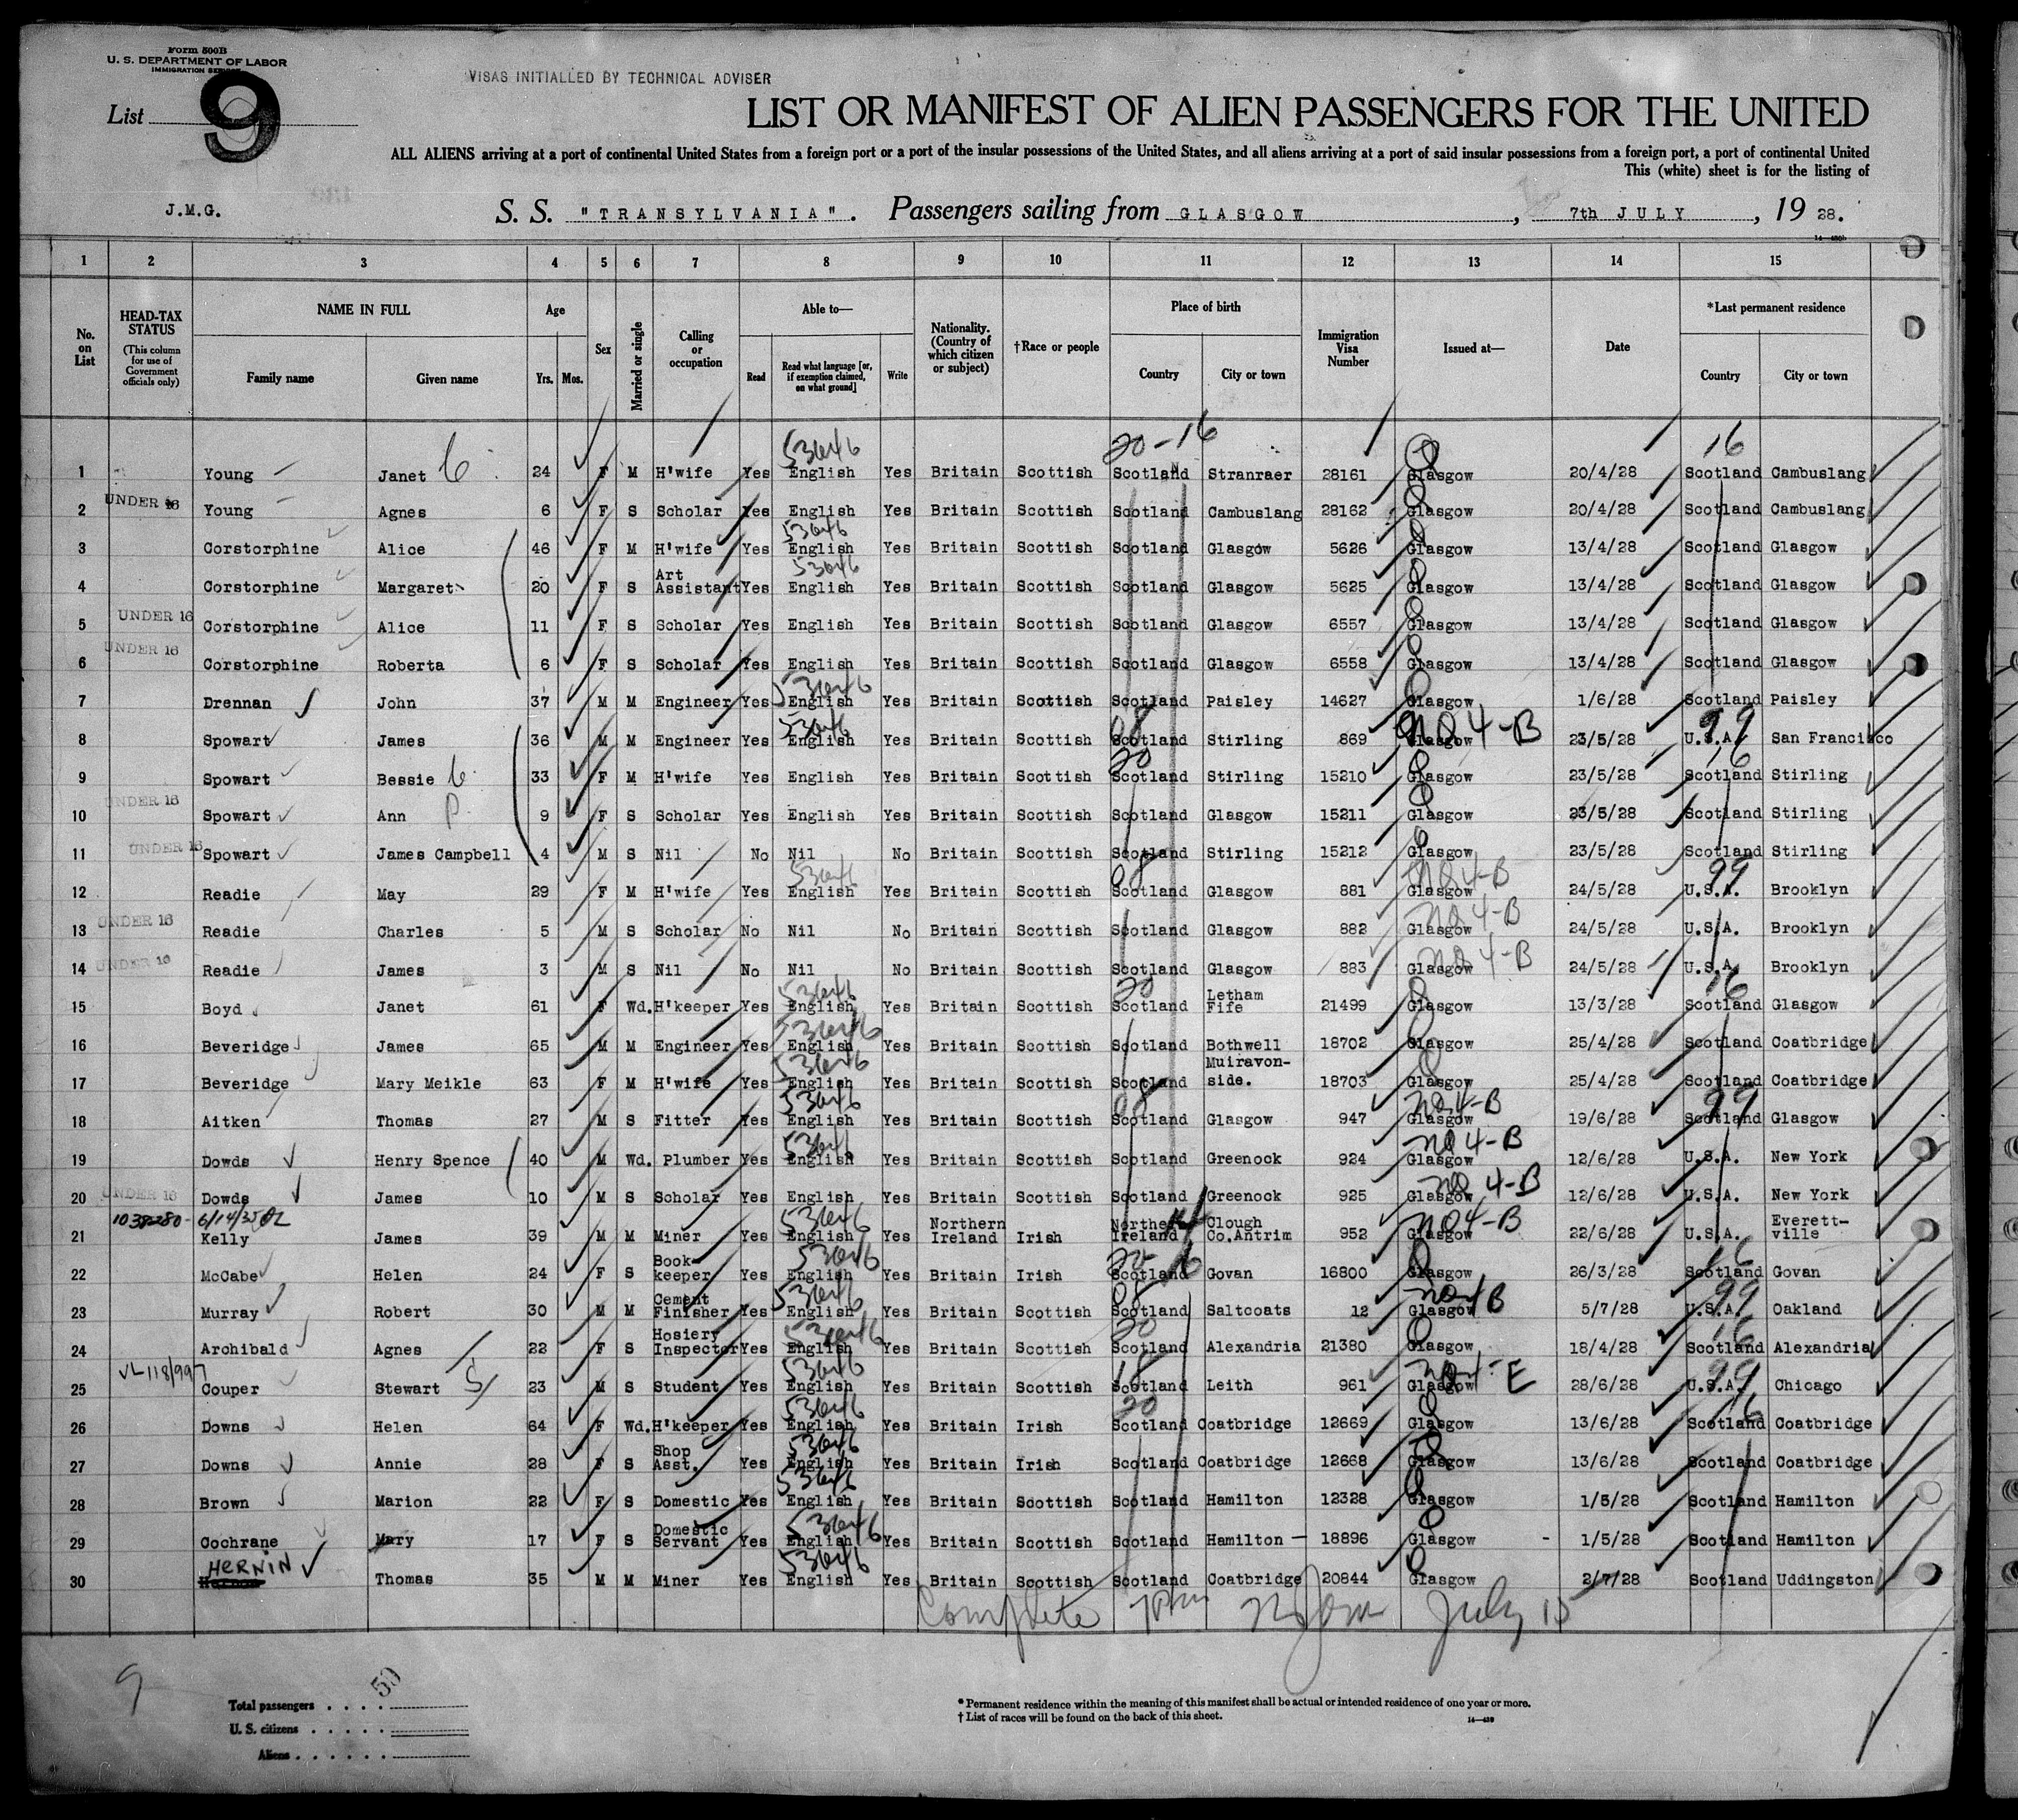 Form 500B
U. S. DEPARTMENT OF LABOR
IMMIGRATION SERVICE
VISAS INITIALLED BY TECHNICAL ADVISER
List 9
LIST OR MANIFEST OF ALIEN PASSENGERS FOR THE UNITED
ALL ALIENS arriving at a port of continental United States from a foreign port or a port of the insular possessions of the United States, and all aliens arriving at a port of said insular possessions from a foreign port, a port of continental United
This (white) sheet is for the listing of
J.M.G. S. S. "TRANSYLVANIA". Passengers sailing from GLASGOW, 7th JULY, 19 28.
1 2 3 4 5 6 7 8 9 10 11 12 13 14 15
No. on List
HEAD-TAX STATUS
(This column for use of Government officials only)
NAME IN FULL
Family name Given name
Age
Yrs. Mos.
Sex
Married or single
Calling or occupation
Able to—
Read Read what language [or, if exemption claimed, on what ground] Write
Nationality. (Country of which citizen or subject)
†Race or people
Place of birth
Country City or town
Immigration Visa Number
Issued at—
Date
*Last permanent residence
Country City or town
53646 20-16 16
1 Young Janet 24 F M H'wife Yes English Yes Britain Scottish Scotland Stranraer 28161 Glasgow 20/4/28 Scotland Cambuslang
2 UNDER 16 Young Agnes 6 F S Scholar Yes English Yes Britain Scottish Scotland Cambuslang 28162 Glasgow 20/4/28 Scotland Cambuslang
53646
3 Corstorphine Alice 46 F M H'wife Yes English Yes Britain Scottish Scotland Glasgow 5626 Glasgow 13/4/28 Scotland Glasgow
53646
4 Corstorphine Margaret 20 F S Art Assistant Yes English Yes Britain Scottish Scotland Glasgow 5625 Glasgow 13/4/28 Scotland Glasgow
5 UNDER 16 Corstorphine Alice 11 F S Scholar Yes English Yes Britain Scottish Scotland Glasgow 6557 Glasgow 13/4/28 Scotland Glasgow
6 UNDER 16 Corstorphine Roberta 6 F S Scholar Yes English Yes Britain Scottish Scotland Glasgow 6558 Glasgow 13/4/28 Scotland Glasgow
53646
7 Drennan John 37 M M Engineer Yes English Yes Britain Scottish Scotland Paisley 14627 Glasgow 1/6/28 Scotland Paisley
53646 08 NQ 4-B 99
8 Spowart James 36 M M Engineer Yes English Yes Britain Scottish Scotland Stirling 869 Glasgow 23/5/28 U.S.A. San Francisco
20 16
9 Spowart Bessie 33 F M H'wife Yes English Yes Britain Scottish Scotland Stirling 15210 Glasgow 23/5/28 Scotland Stirling
10 UNDER 16 Spowart Ann P 9 F S Scholar Yes English Yes Britain Scottish Scotland Glasgow 15211 Glasgow 23/5/28 Scotland Stirling
11 UNDER 16 Spowart James Campbell 4 M S Nil No Nil No Britain Scottish Scotland Stirling 15212 Glasgow 23/5/28 Scotland Stirling
53646 08 NQ 4-B 99
12 Readie May 29 F M H'wife Yes English Yes Britain Scottish Scotland Glasgow 881 Glasgow 24/5/28 U.S.A. Brooklyn
NQ 4-B
13 UNDER 16 Readie Charles 5 M S Scholar No Nil No Britain Scottish Scotland Glasgow 882 Glasgow 24/5/28 U.S.A. Brooklyn
NQ 4-B
14 UNDER 16 Readie James 3 M S Nil No Nil No Britain Scottish Scotland Glasgow 883 Glasgow 24/5/28 U.S.A. Brooklyn
53646 20 16
15 Boyd Janet 61 F Wd. H'keeper Yes English Yes Britain Scottish Scotland Letham Fife 21499 Glasgow 13/3/28 Scotland Glasgow
53646
16 Beveridge James 65 M M Engineer Yes English Yes Britain Scottish Scotland Bothwell 18702 Glasgow 25/4/28 Scotland Coatbridge
53646
17 Beveridge Mary Meikle 63 F M H'wife Yes English Yes Britain Scottish Scotland Muiravon-side. 18703 Glasgow 25/4/28 Scotland Coatbridge
53646 08 NQ 4-B 99
18 Aitken Thomas 27 M S Fitter Yes English Yes Britain Scottish Scotland Glasgow 947 Glasgow 19/6/28 Scotland Glasgow
53646 NQ 4-B
19 Dowds Henry Spence 40 M Wd. Plumber Yes English Yes Britain Scottish Scotland Greenock 924 Glasgow 12/6/28 U.S.A. New York
NQ 4-B
20 UNDER 16 Dowds James 10 M S Scholar Yes English Yes Britain Scottish Scotland Greenock 925 Glasgow 12/6/28 U.S.A. New York
53646 14 NQ 4-B
21 Kelly James 39 M M Miner Yes English Yes Northern Ireland Irish Northern Ireland Clough Co.Antrim 952 Glasgow 22/6/28 U.S.A. Everett-ville
53646 20 16 16
22 McCabe Helen 24 F S Book-keeper Yes English Yes Britain Irish Scotland Govan 16800 Glasgow 26/3/28 Scotland Govan
53646 08 NQ 4 B 99
23 Murray Robert 30 M M Cement Finisher Yes English Yes Britain Scottish Scotland Saltcoats 12 Glasgow 5/7/28 U.S.A. Oakland
53646 20 16
24 Archibald Agnes 22 F S Hosiery Inspector Yes English Yes Britain Scottish Scotland Alexandria 21380 Glasgow 18/4/28 Scotland Alexandria
VL 118/997 53646 18 NQ 4-E 99
25 Couper Stewart 23 M S Student Yes English Yes Britain Scottish Scotland Leith 961 Glasgow 28/6/28 U.S.A. Chicago
53646 20 16
26 Downs Helen 64 F Wd. H'keeper Yes English Yes Britain Irish Scotland Coatbridge 12669 Glasgow 13/6/28 Scotland Coatbridge
53646
27 Downs Annie 28 F S Shop Asst. Yes English Yes Britain Irish Scotland Coatbridge 12668 Glasgow 13/6/28 Scotland Coatbridge
53646
28 Brown Marion 22 F S Domestic Yes English Yes Britain Scottish Scotland Hamilton 12328 Glasgow 1/5/28 Scotland Hamilton
53646
29 Cochrane Mary 17 F S Domestic Servant Yes English Yes Britain Scottish Scotland Hamilton 18896 Glasgow 1/5/28 Scotland Hamilton
53646
30 HERNIN Thomas 35 M M Miner Yes English Yes Britain Scottish Scotland Coatbridge 20844 Glasgow 2/7/28 Scotland Uddingston
Complete July 15
9
Total passengers . . . . 50
U. S. citizens . . . . .
Aliens . . . . . .
* Permanent residence within the meaning of this manifest shall be actual or intended residence of one year or more.
† List of races will be found on the back of this sheet.